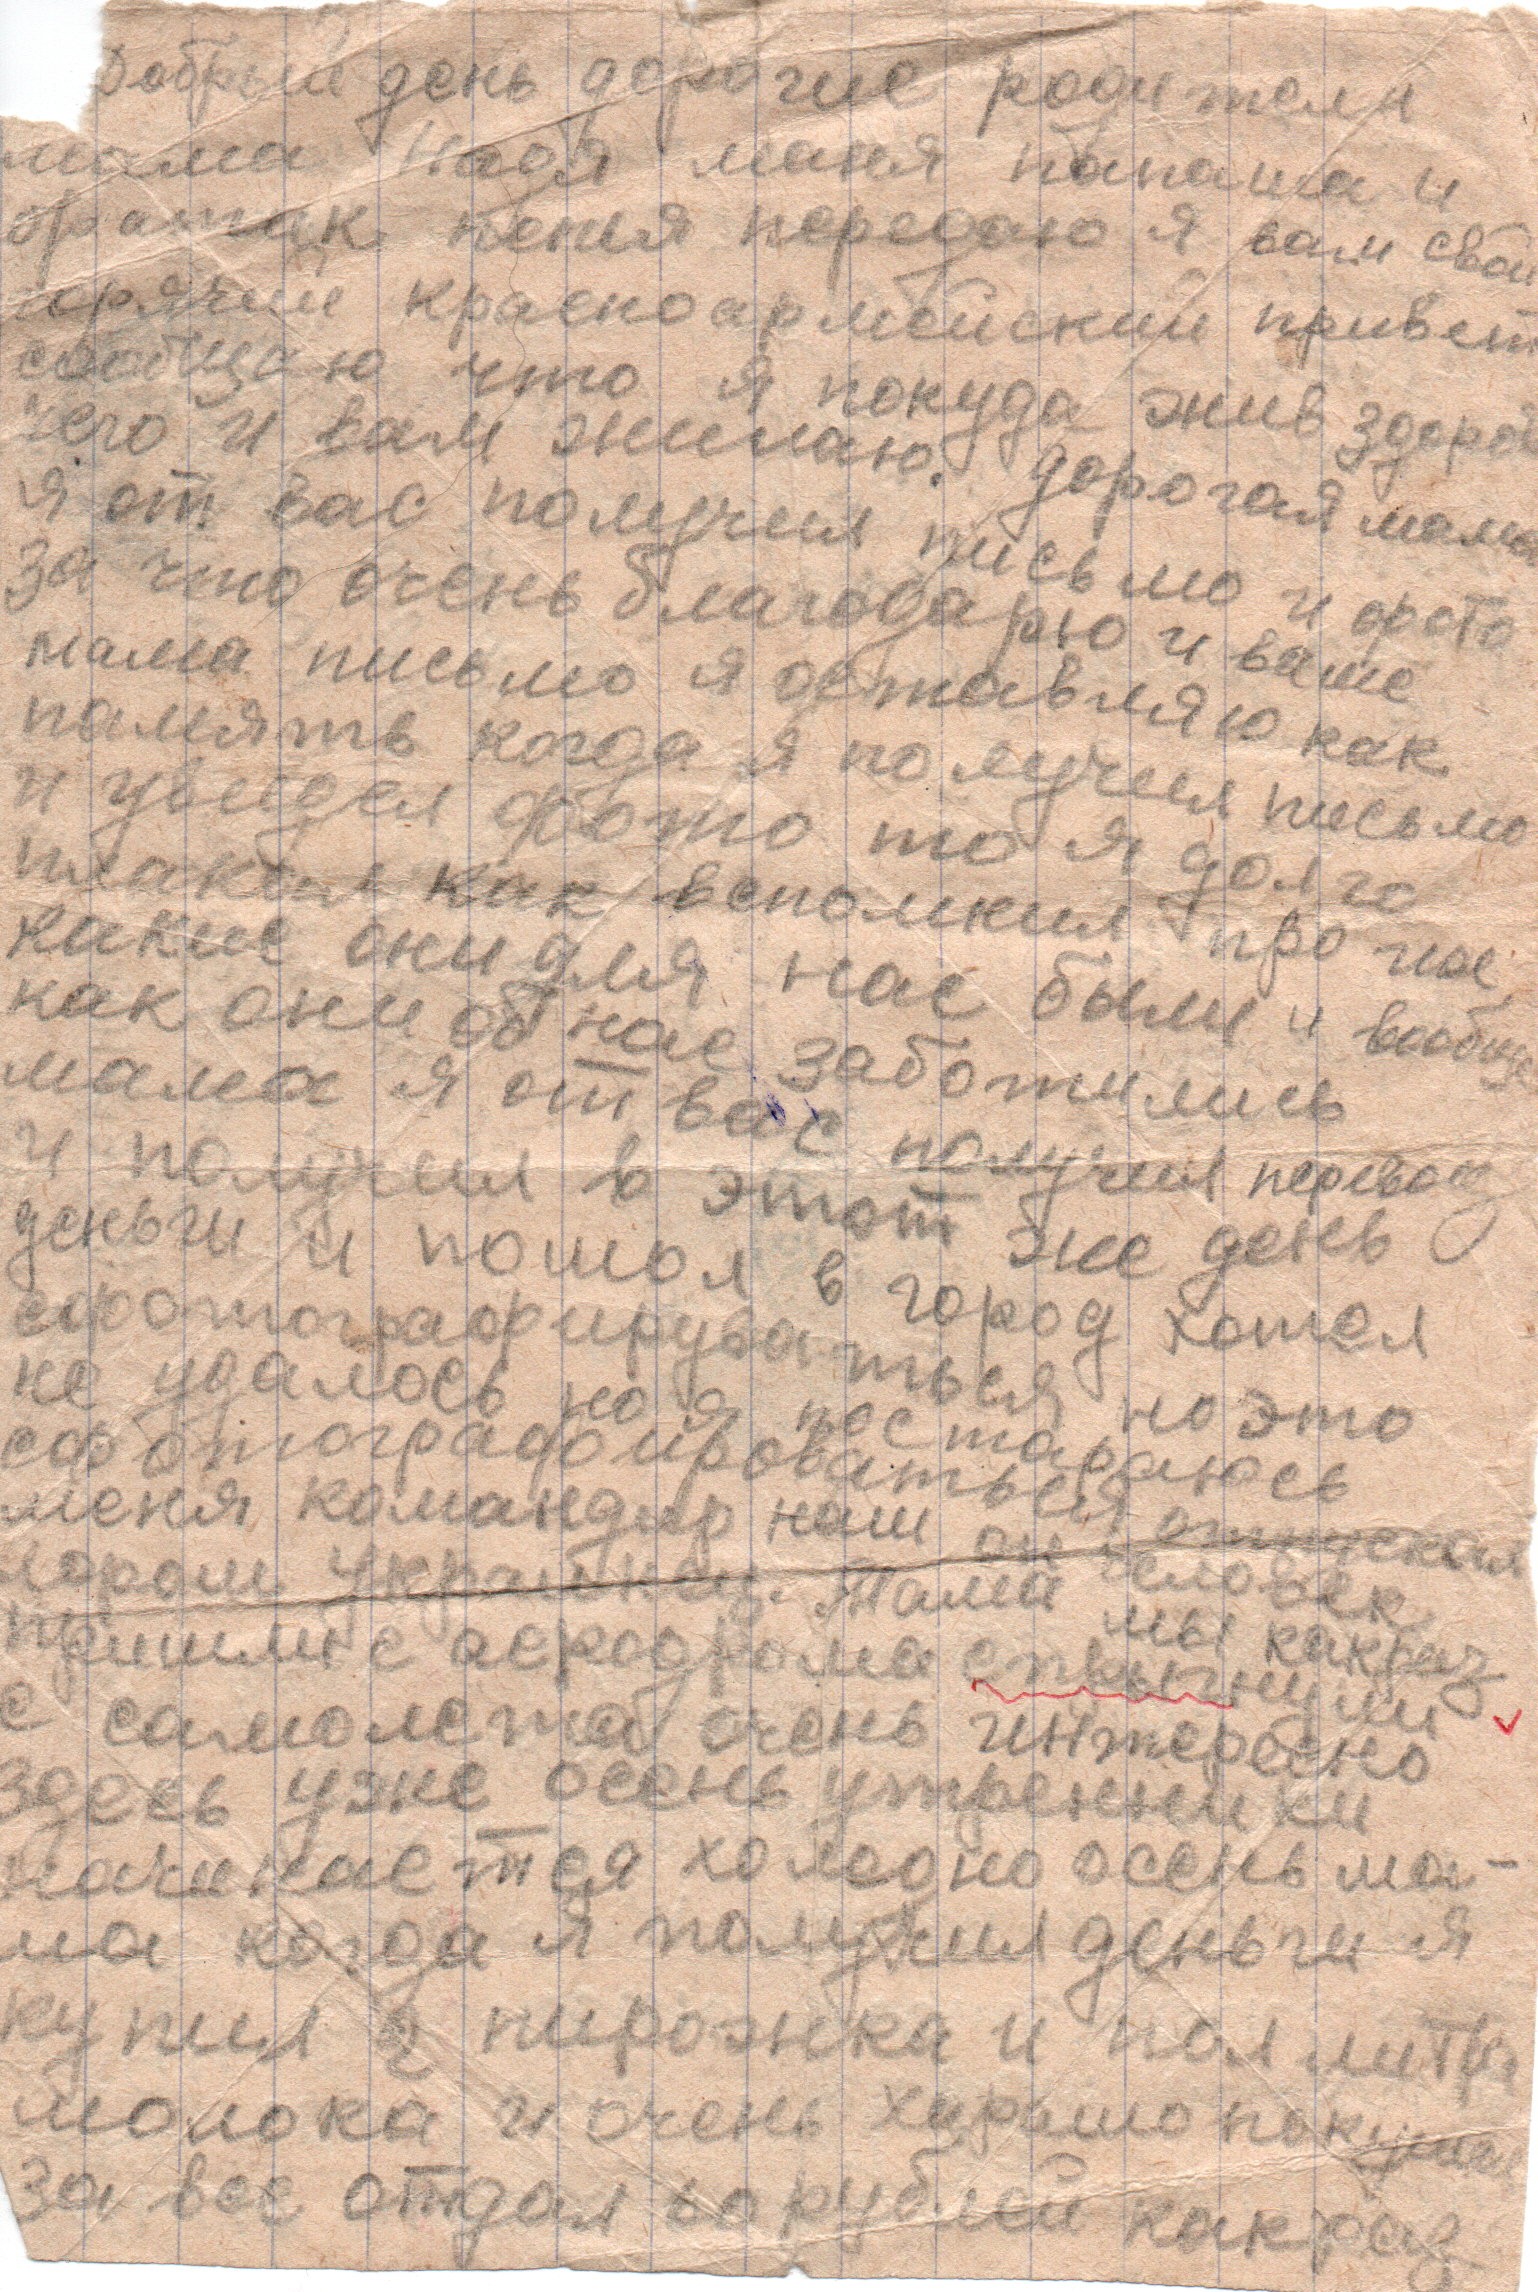 Добрый день дорогие родители
мама Надя маня папаша и
братик женя передаю я вам свой
горячий красноармейский привет
сообщаю что я покуда жив здоров
чего и вам жилаю. дорогая мама
я от вас получил письмо и фото
за что очень благодарю и ваше
мама письмо я оставляю как
память когда я получил письмо
и увидел фото то я долго
плакал как вспомнил про них
какие они для нас были и вообще
как они об нас заботились
мама я от вас получил перевод
и получил в этот же день
деньги и пошол в город хотел
сфотографируваться но это
не удалось но я постараюсь
сфотографироваться отпускал
меня командир наш он человек
хороши украинец. Мама мы какраз
пришли с аеродрома спрыгнули
с самолета очень интересно
здесь уже осень утренники
начинается холодно осень ма-
ма когда я получил деньги я
купил 2 пирожка и пол литра
молока и очень хорошо покушал
за все отдал 50 рублей какраз